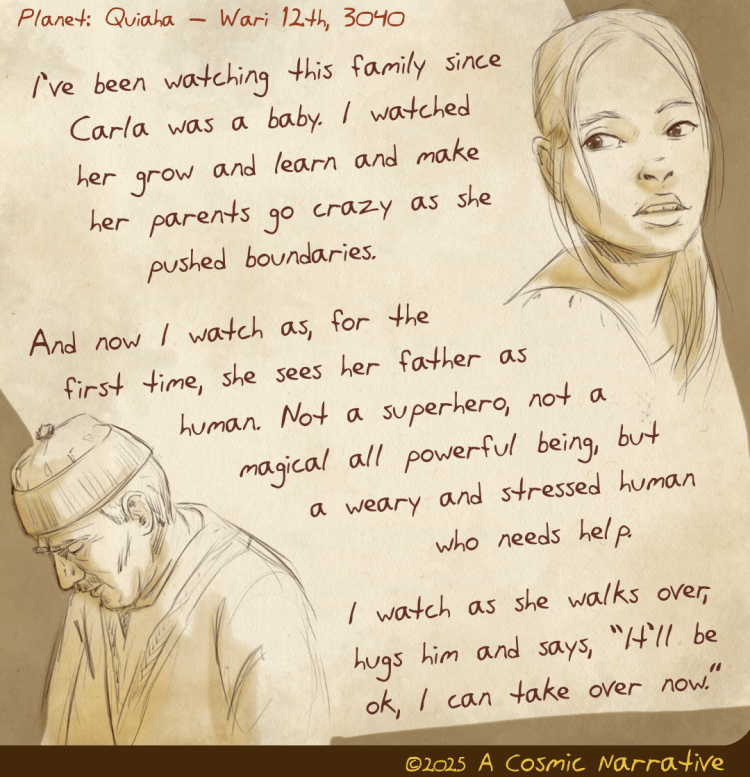 Planet: Quiaha – Wari 12th, 3040
I've been watching this family since
Carla was a baby. I watched
her grow and learn and make
her parents go crazy as she
pushed boundaries.
And now I watch as, for the
first time, she sees her father as
human. Not a superhero, not a
magical all powerful being, but
a weary and stressed human
who needs help.
I watch as she walks over,
hugs him and says, "It'll be
ok, I can take over now."
©2025 A Cosmic Narrative